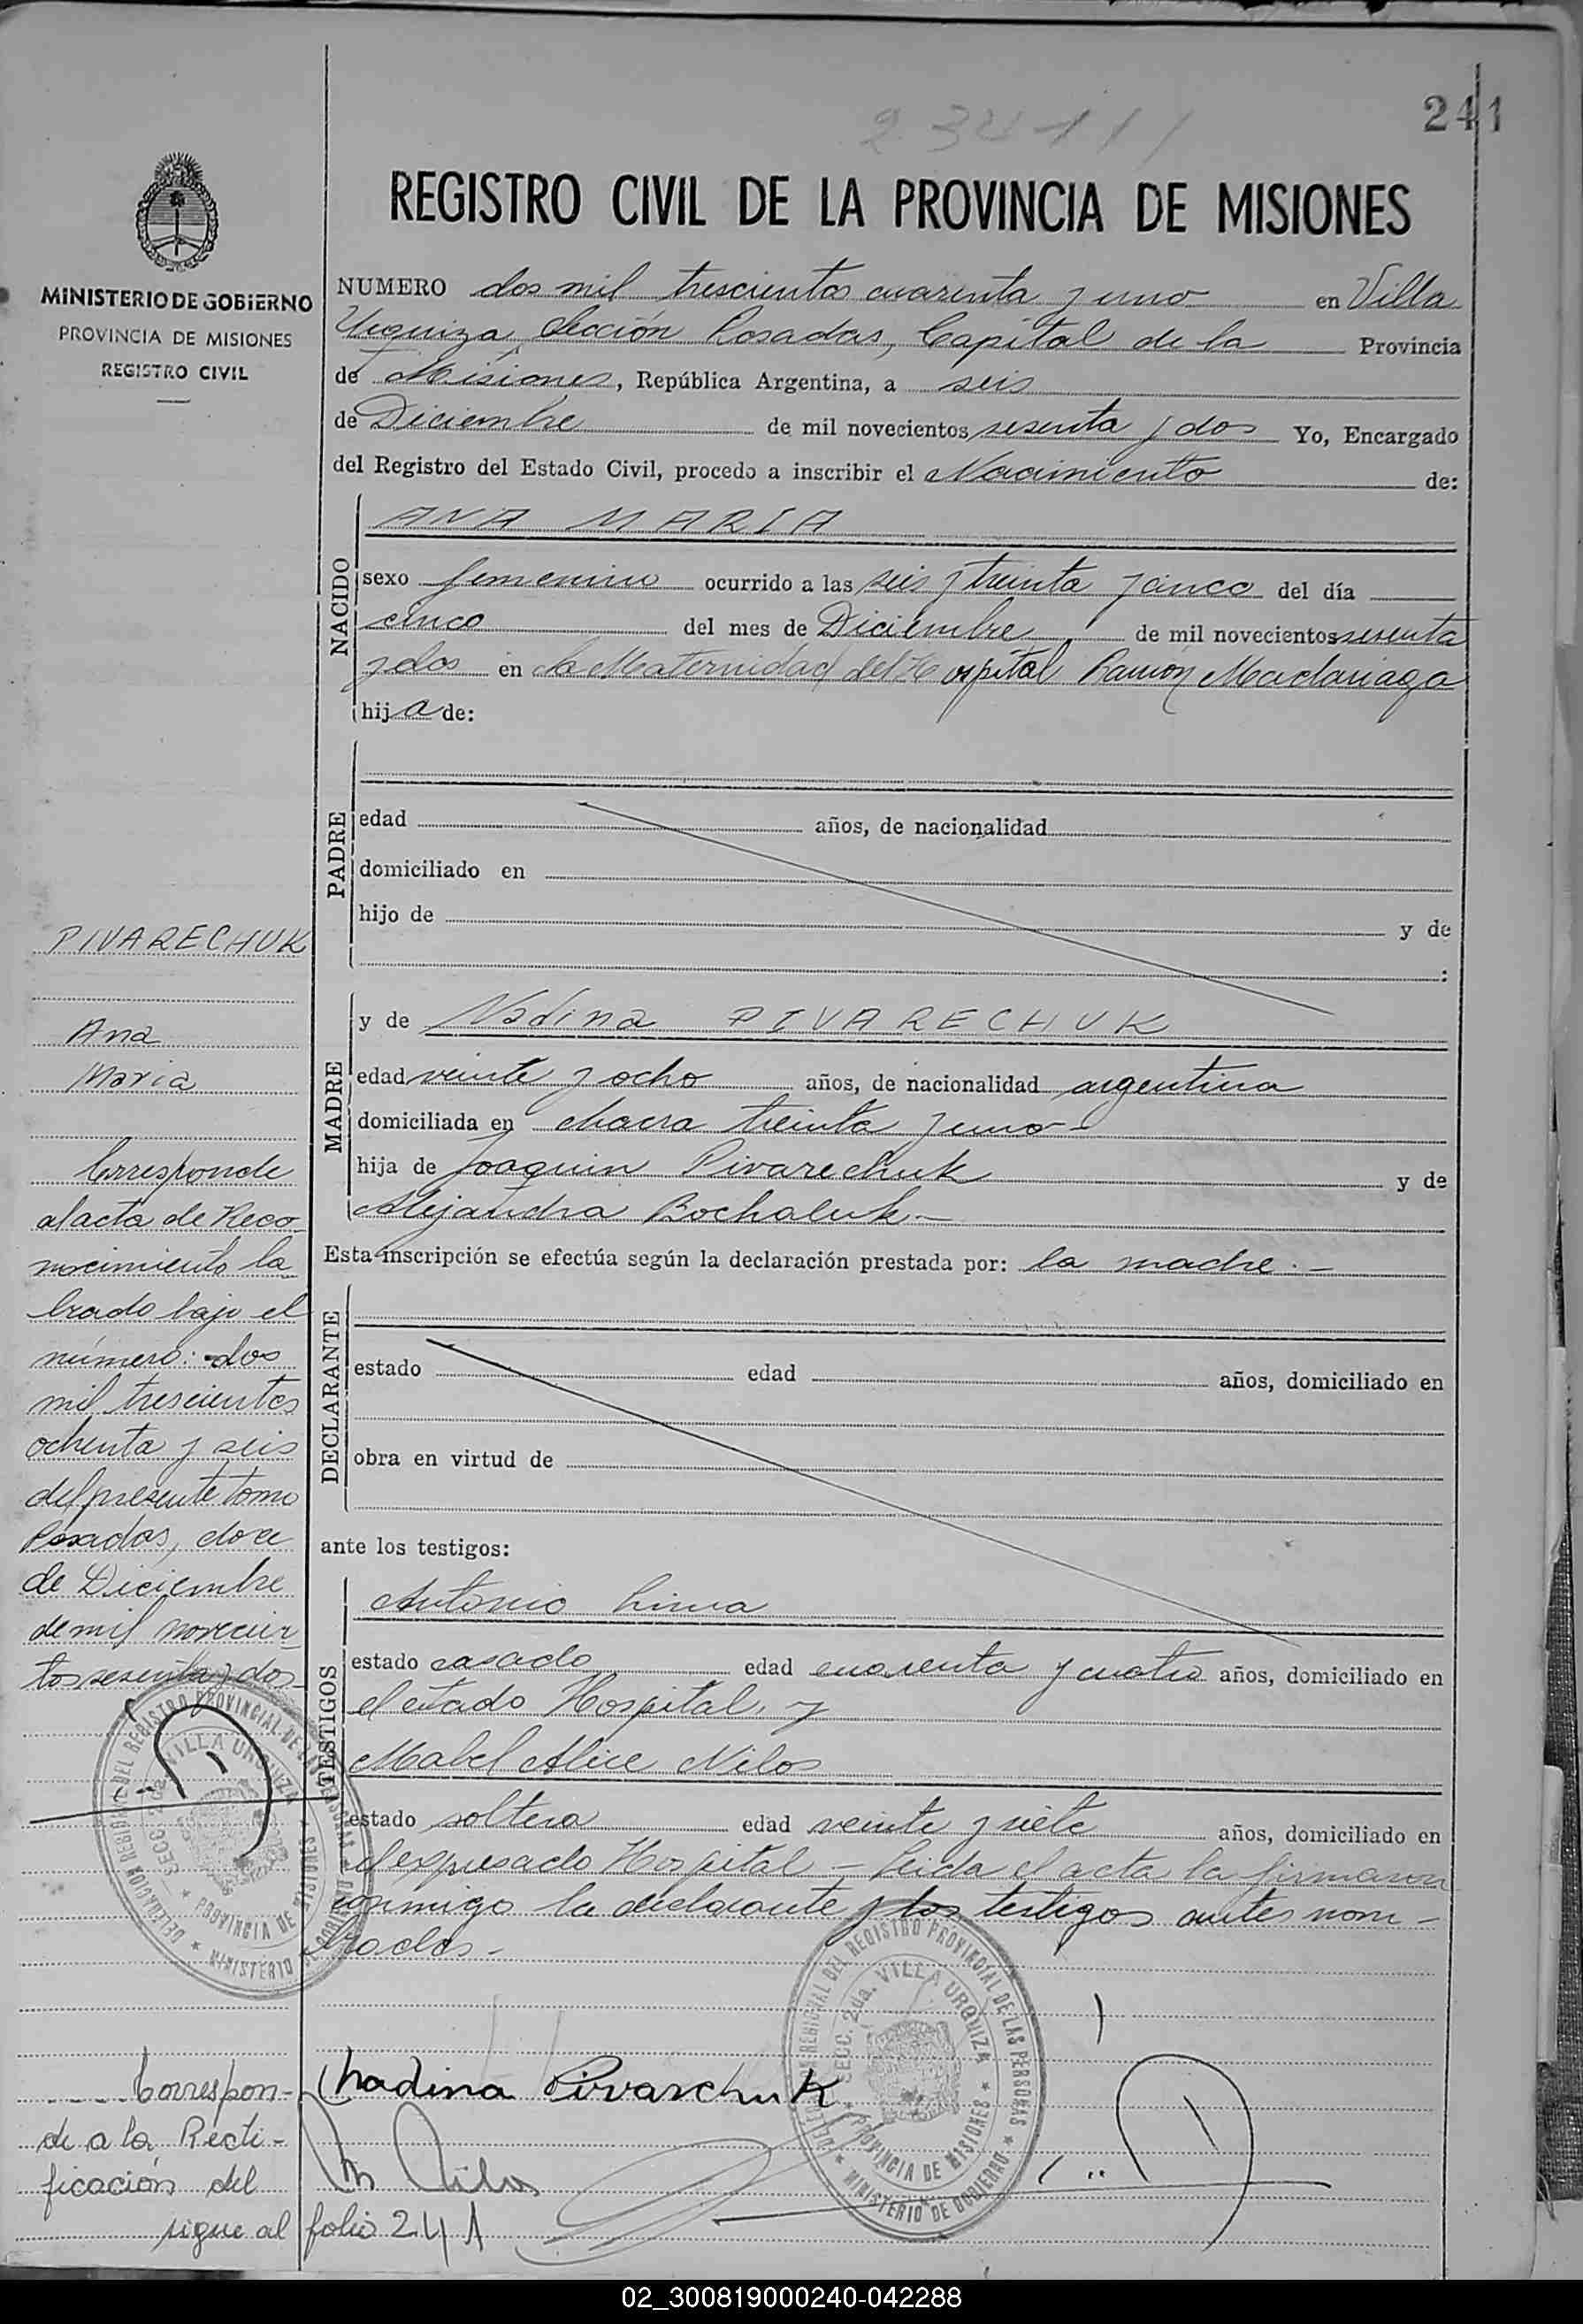 241
234111
REGISTRO CIVIL DE LA PROVINCIA DE MISIONES
MINISTERIO DE GOBIERNO
PROVINCIA DE MISIONES
REGISTRO CIVIL
NUMERO dos mil trescientos cuarenta y uno en Villa
Urquiza, Sección Posadas, Capital de la Provincia
de Misiones, República Argentina, a seis
de Diciembre de mil novecientos sesenta y dos Yo, Encargado
del Registro del Estado Civil, procedo a inscribir el Nacimiento de:
NACIDO
ANA MARIA
sexo femenino ocurrido a las seis y treinta y cinco del día
cinco del mes de Diciembre de mil novecientos sesenta
y dos en la Maternidad del Hospital Ramón Madariaga
hija de:
PADRE
edad años, de nacionalidad
domiciliado en
hijo de y de
:
MADRE
y de Nadina PIVARECHUK
edad veinte y ocho años, de nacionalidad argentina
domiciliada en chacra treinta y uno-
hija de Joaquin Pivarechuk y de
Alejandra Bochaluk-
Esta inscripción se efectúa según la declaración prestada por: la madre.-
DECLARANTE
estado edad años, domiciliado en
obra en virtud de
ante los testigos:
TESTIGOS
Antonio Lima
estado casado edad cuarenta y cuatro años, domiciliado en
el citado Hospital, y
Mabel Alice Nilos
estado soltera edad veinte y siete años, domiciliado en
el expresado Hospital - Leida el acta la firmaron
conmigo la declarante y los testigos antes nom-
brados-
PIVARECHUK
Ana
Maria
Corresponde
al acta de Reco-
nocimiento la
brado bajo el
número: dos
mil trescientos
ochenta y seis
del presente tomo
Posadas, doce
de Diciembre
de mil novecien
tos sesenta y dos-
DELEGACION REGIONAL DEL REGISTRO PROVINCIAL DE LAS PERSONAS
SECC. 2da. VILLA URQUIZA
PROVINCIA DE MISIONES
MINISTERIO DE GOBIERNO
DELEGACION REGIONAL DEL REGISTRO PROVINCIAL DE LAS PERSONAS
SECC. 2da. VILLA URQUIZA
PROVINCIA DE MISIONES
MINISTERIO DE GOBIERNO
Nadina Pivarchuk
M Nilos
Correspon-
de a la Recti-
ficación del
sigue al folio 241
02_300819000240-042288